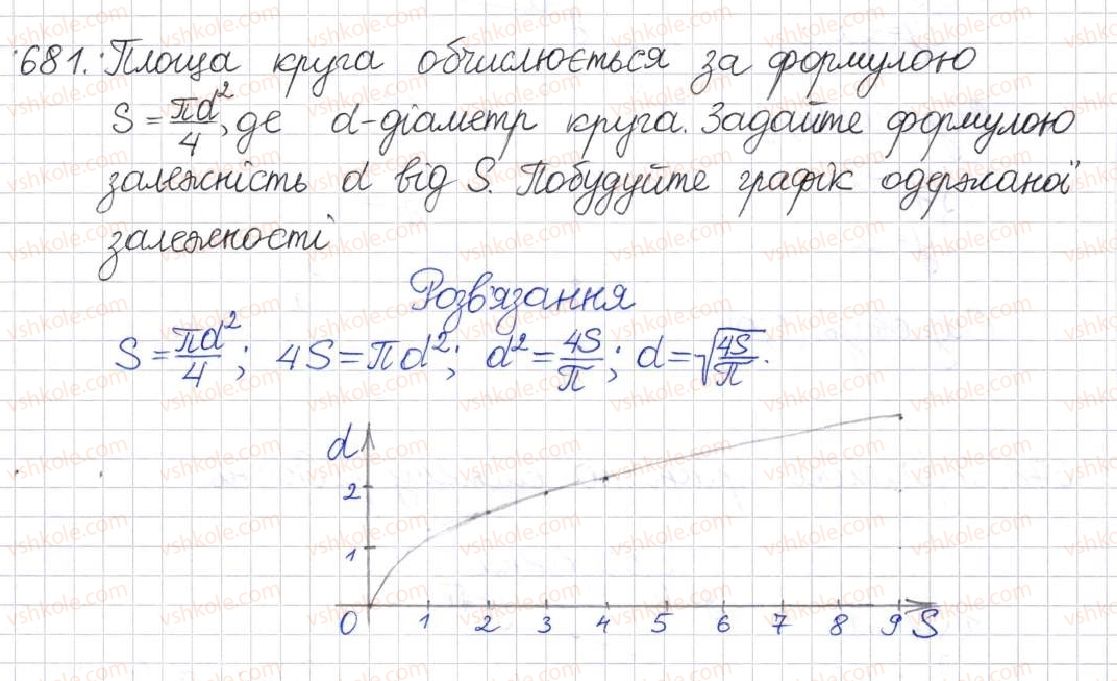 681. Площа круга обчислюється за формулою
S = πd²/4, де d-діаметр круга. Задайте формулою
залежність d від S. Побудуйте графік одержаної
залежності
Розв'язання
S = πd²/4; 4S = πd²; d² = 4S/π; d = √(4S/π).
d
2
1
0 1 2 3 4 5 6 7 8 9 S
vshkole.com